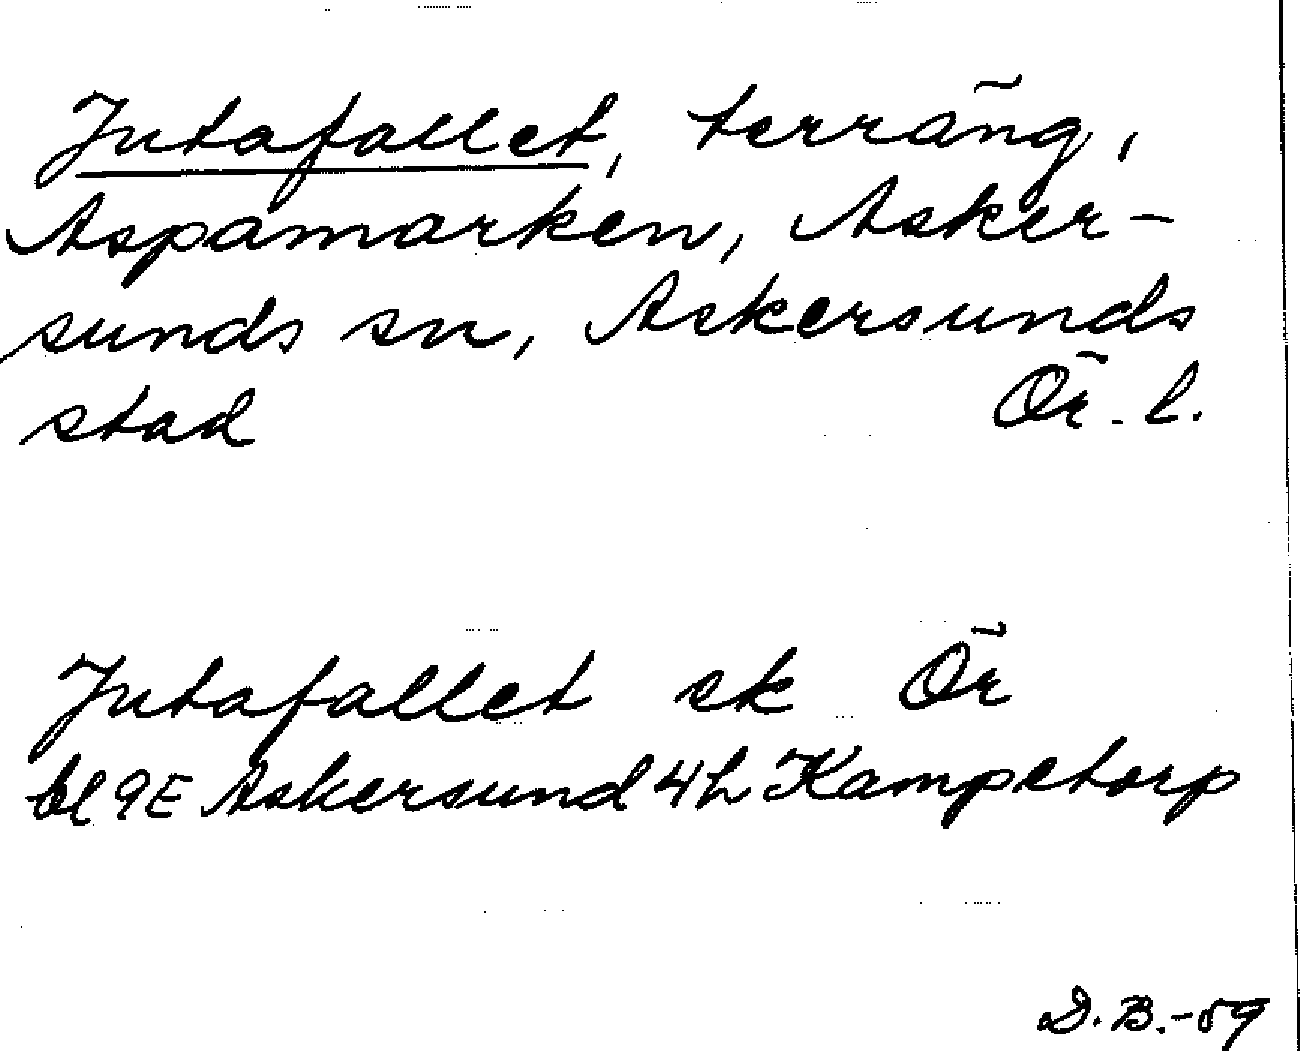 Jutafallet, terräng,
Aspamarken, Asker-
sunds sn, Askersunds
stad Ör. l.
Jutafallet ek Ör
bl 9E Askersund 4h Kampetorp
D.B.-59